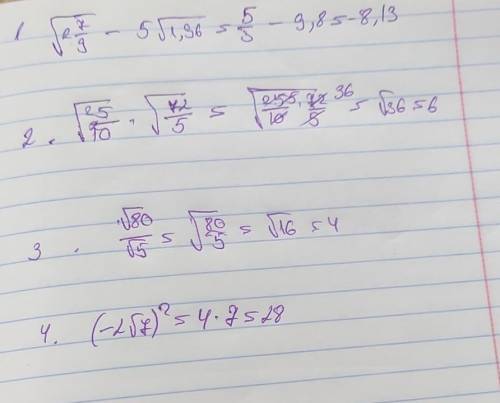 1 √2 7/9 - 5√1,96 = 5/3 - 9,8 = -8,13
2. √25/10 · √72/5 = √25 5/10 · 72 36/5 = √36 = 6
3 . √80/√5 = √80/5 = √16 = 4
4. (-2√7)² = 4 · 7 = 28